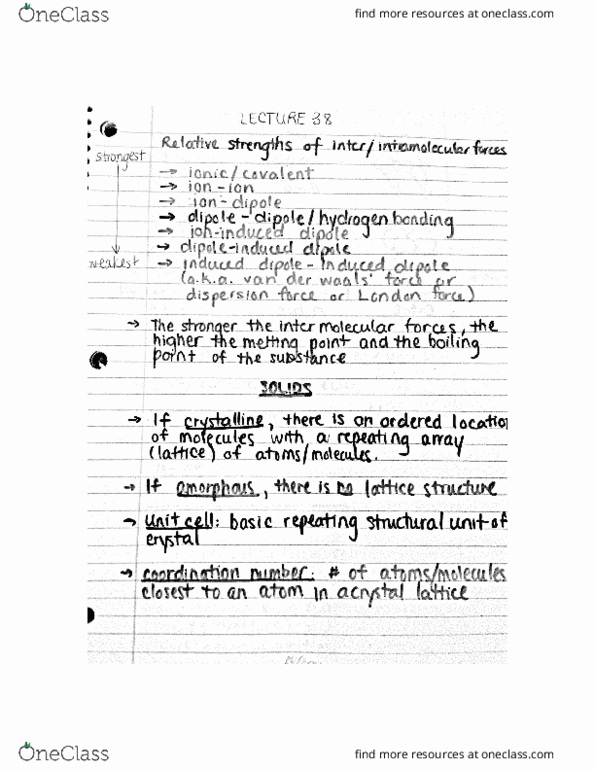 OneClass
find more resources at oneclass.com
LECTURE 38
Relative strengths of inter/intramolecular forces
strongest
→ ionic/covalent
→ ion-ion
→ ion-dipole
→ dipole-dipole/hydrogen bonding
→ ion-induced dipole
→ dipole-induced dipole
weakest
→ induced dipole-induced dipole
(a.k.a. van der waals' force or
dispersion force or London force)
→ The stronger the intermolecular forces, the
higher the melting point and the boiling
point of the substance
SOLIDS
→ If crystalline, there is an ordered locatio
of molecules with a repeating array
(lattice) of atoms/molecules.
→ If amorphous, there is no lattice structure
→ unit cell: basic repeating structural unit of
crystal
→ coordination number: # of atoms/molecules
closest to an atom in a crystal lattice
OneClass
find more resources at oneclass.com